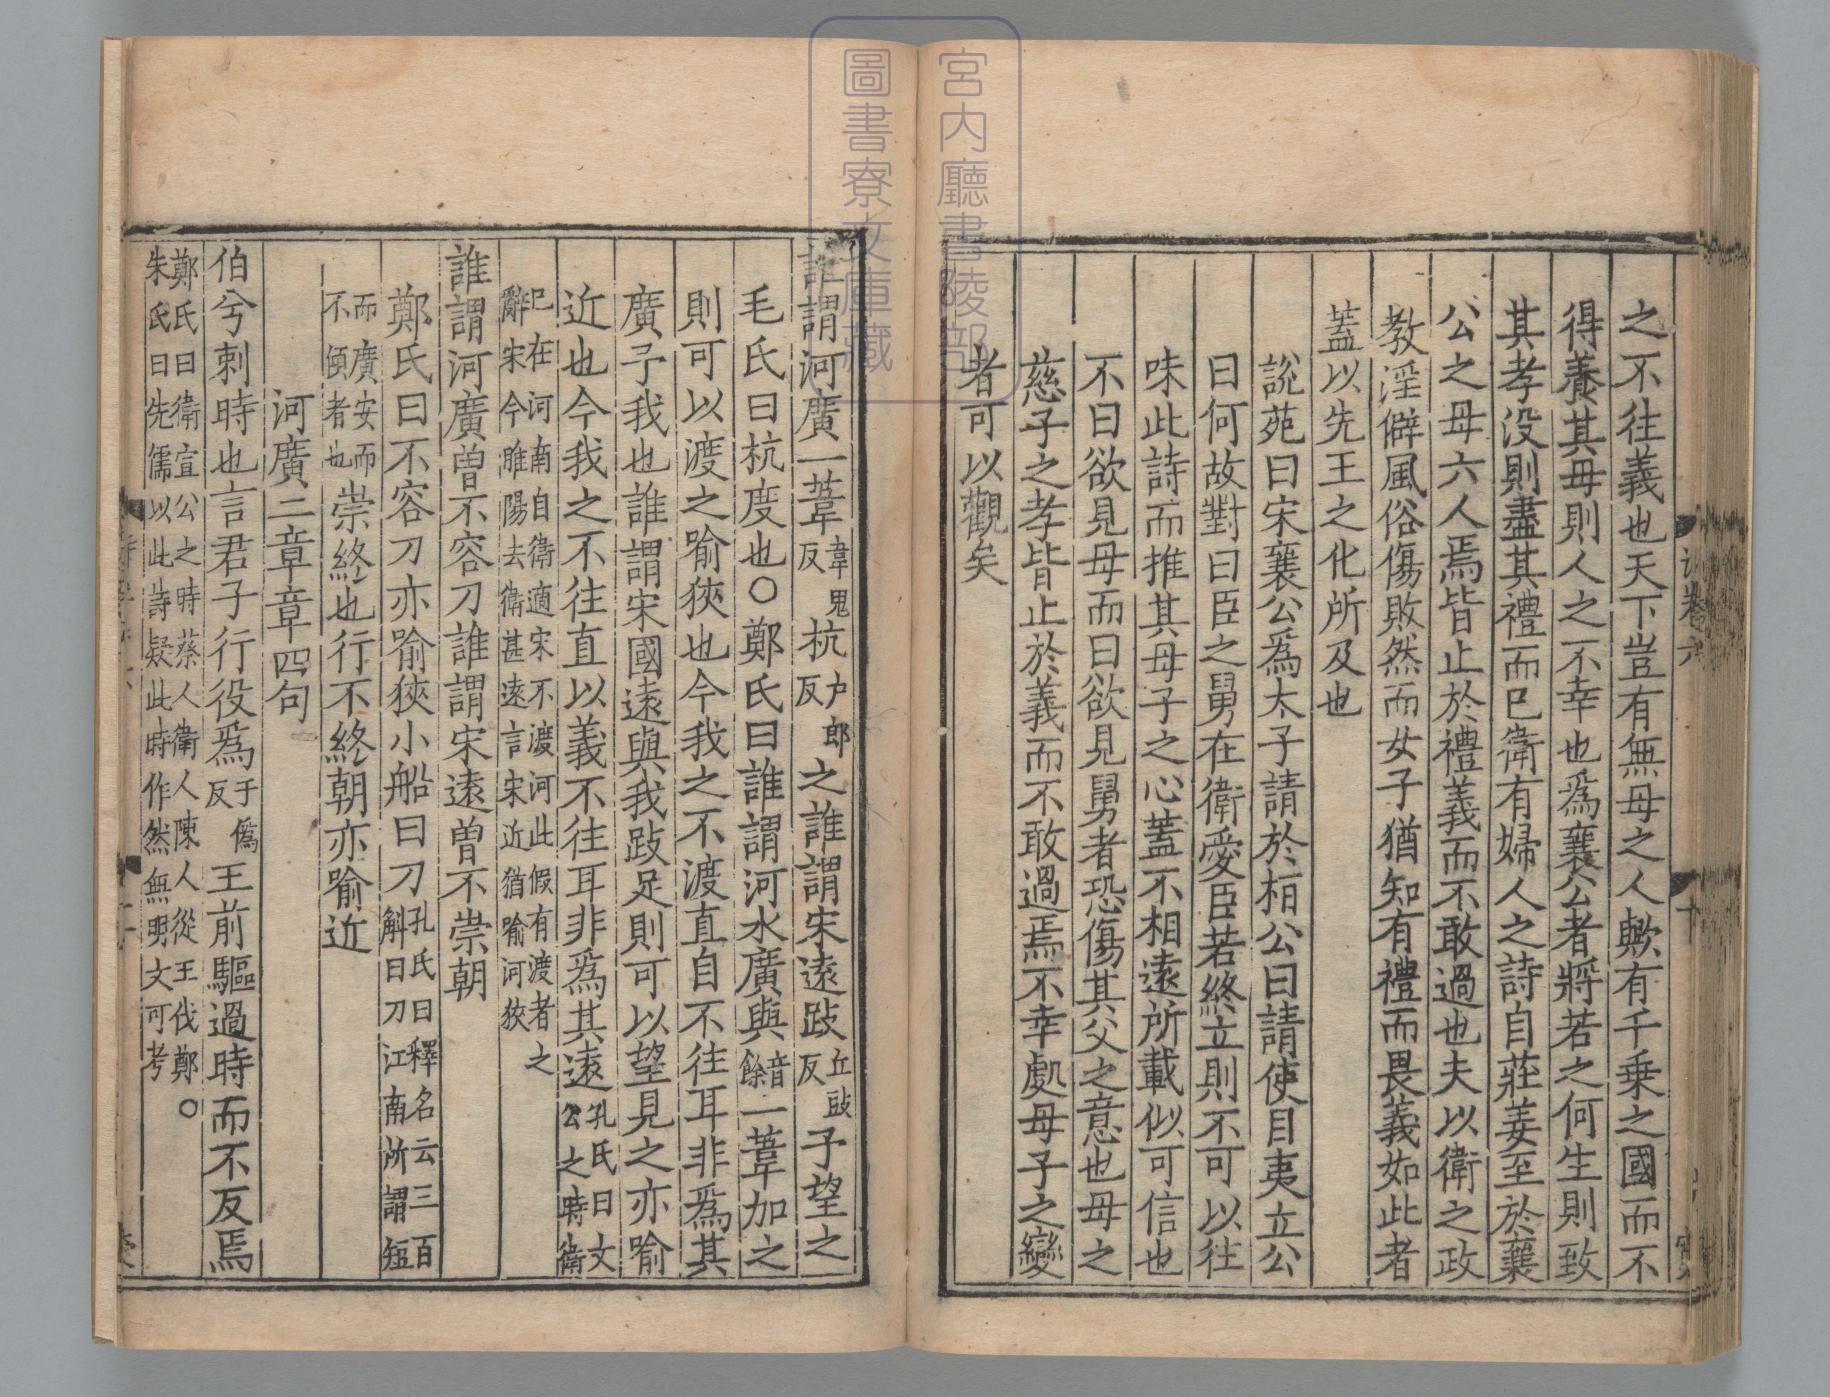 之不往義也天下豈有無母之人歟有千乗之國而不
得養其母則人之不幸也為襄公者將若之何生則致
其孝没則盡其禮而已衛有婦人之詩自莊姜至於襄
公之母六人焉皆止於禮義而不敢過也夫以衛之政
教淫僻風俗傷敗然而女子猶知有禮而畏義如此者
蓋以先王之化所及也
説苑曰宋襄公為太子請於桓公曰請使目夷立公
曰何故對曰臣之舅在衛愛臣若終立則不可以往
味此詩而推其母子之心蓋不相遠所載似可信也
不曰欲見母而曰欲見舅者恐傷其父之意也母之
慈子之孝皆止於義而不敢過焉不幸處母子之變
者可以觀矣
誰謂河廣一葦韋鬼反杭户郎反之誰謂宋遠跂丘豉反予望之
毛氏曰杭度也○鄭氏曰誰謂河水廣與音餘一葦加之
則可以渡之喻狹也今我之不渡直自不往耳非爲其
廣予我也誰謂宋國遠與我跂足則可以望見之亦喻
近也今我之不往直以義不往耳非爲其遠孔氏曰文公之時衛
已在河南自衛適宋不渡河此假有渡者之
辭宋今睢陽去衛甚遠言宋近猶喻河狹
誰謂河廣曾不容刀誰謂宋遠曾不崇朝
鄭氏曰不容刀亦喻狹小船曰刀孔氏曰釋名云三百斛曰刀江南所謂短
而廣安而不傾者也崇終也行不終朝亦喻近
河廣二章章四句
伯兮刺時也言君子行役爲于僞反王前驅過時而不反焉
鄭氏曰衛宣公之時蔡人衛人陳人從王伐鄭○
朱氏曰先儒以此詩疑此時作然無明文可考
詩卷六
十
宮内廳書陵部
圖書寮文庫藏